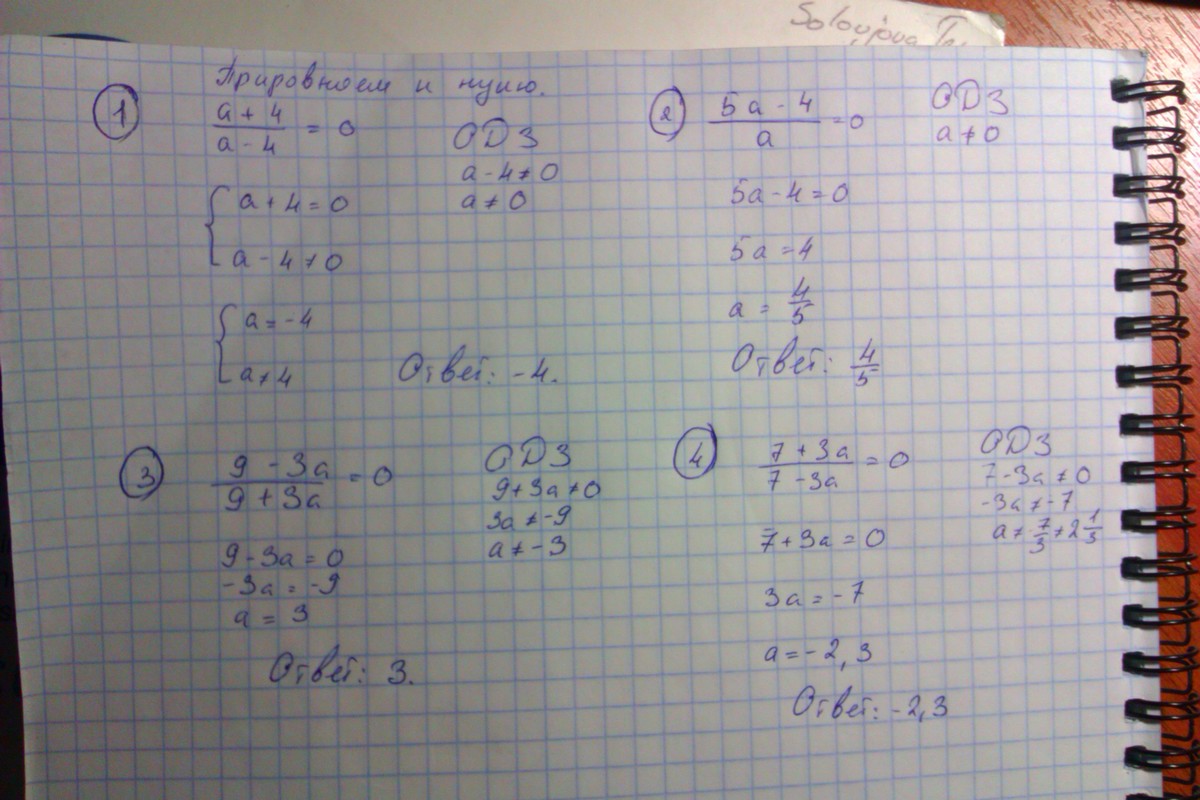 Solovjova
Прировняем к нулю.
1
a + 4 / a - 4 = 0
ОДЗ
a - 4 ≠ 0
a ≠ 0
{ a + 4 = 0
a - 4 ≠ 0
{ a = -4
a ≠ 4
Ответ: -4.
2
5a - 4 / a = 0
ОДЗ
a ≠ 0
5a - 4 = 0
5a = 4
a = 4/5
Ответ: 4/5
3
9 - 3a / 9 + 3a = 0
ОДЗ
9 + 3a ≠ 0
3a ≠ -9
a ≠ -3
9 - 3a = 0
-3a = -9
a = 3
Ответ: 3.
4
7 + 3a / 7 - 3a = 0
ОДЗ
7 - 3a ≠ 0
-3a ≠ -7
a ≠ 7/3 ≠ 2 1/3
7 + 3a = 0
3a = -7
a = -2,3
Ответ: -2,3